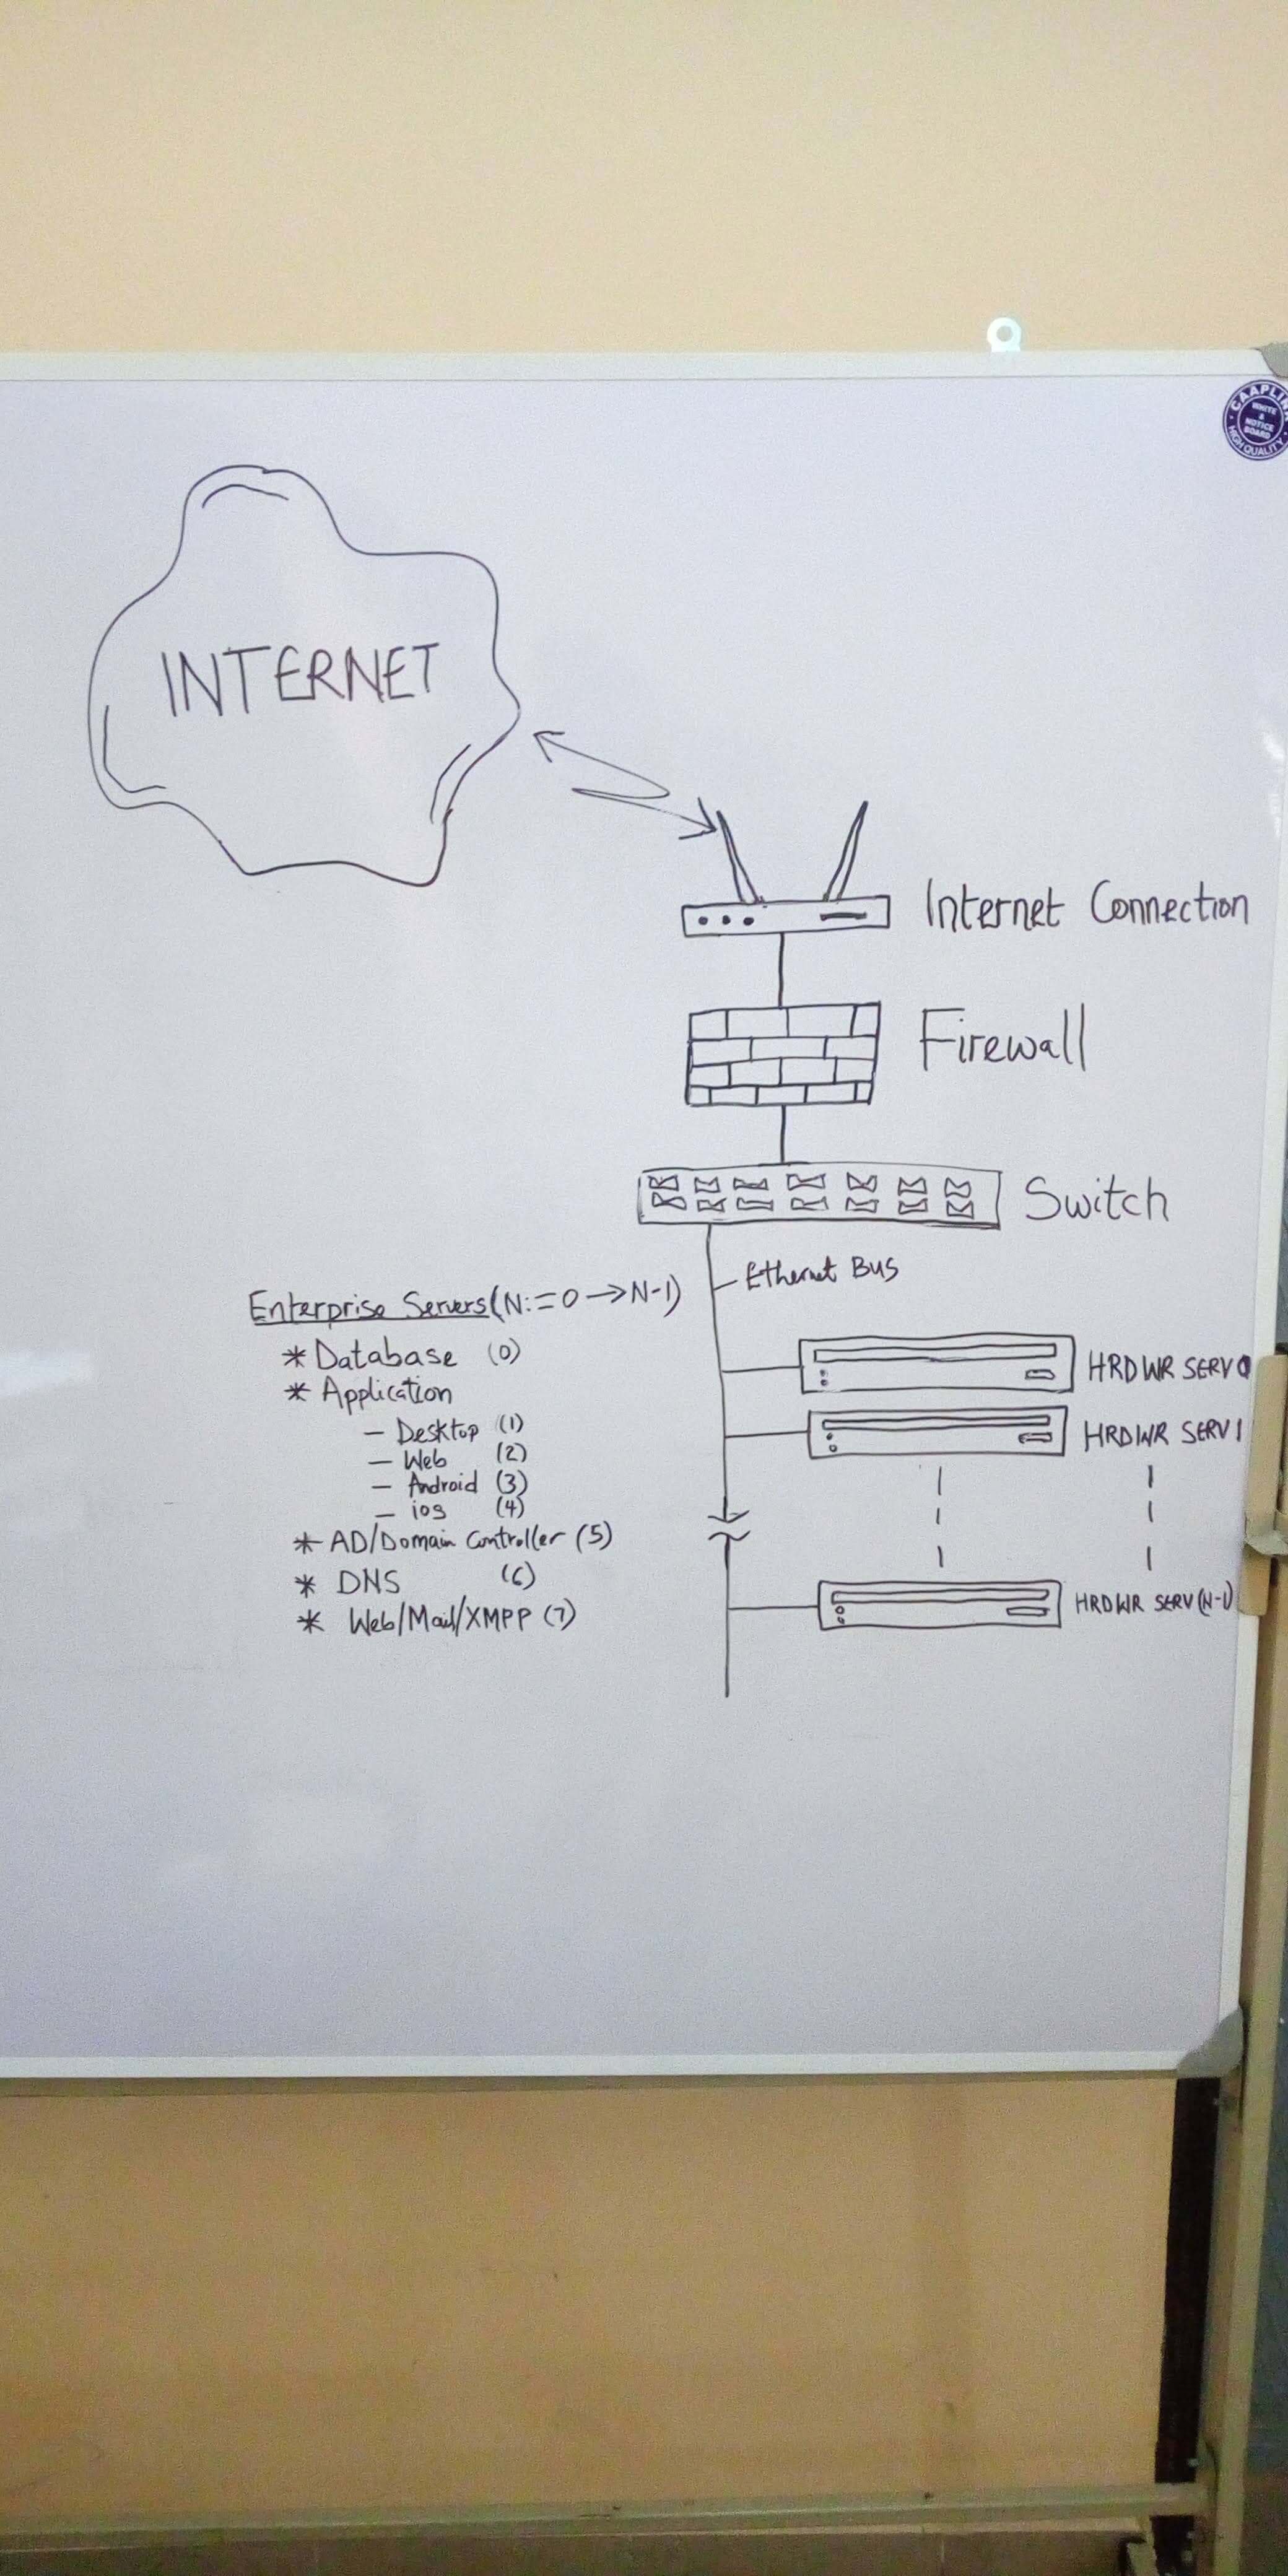 CAAPLIN
WHITE
&
NOTICE
BOARD
HIGH QUALITY
INTERNET
Internet Connection
Firewall
Switch
Ethernet Bus
Enterprise Servers (N:=0→N-1)
* Database (0)
* Application
- Desktop (1)
- Web (2)
- Android (3)
- ios (4)
* AD/Domain Controller (5)
* DNS (6)
* Web/Mail/XMPP (7)
HRDWR SERV 0
HRDWR SERV 1
HRDWR SERV (N-1)